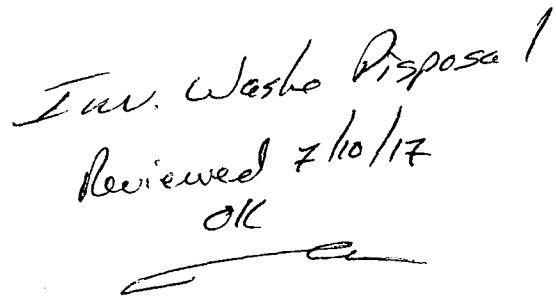 Inv. Waste Disposal
Reviewed 7/10/17
OK